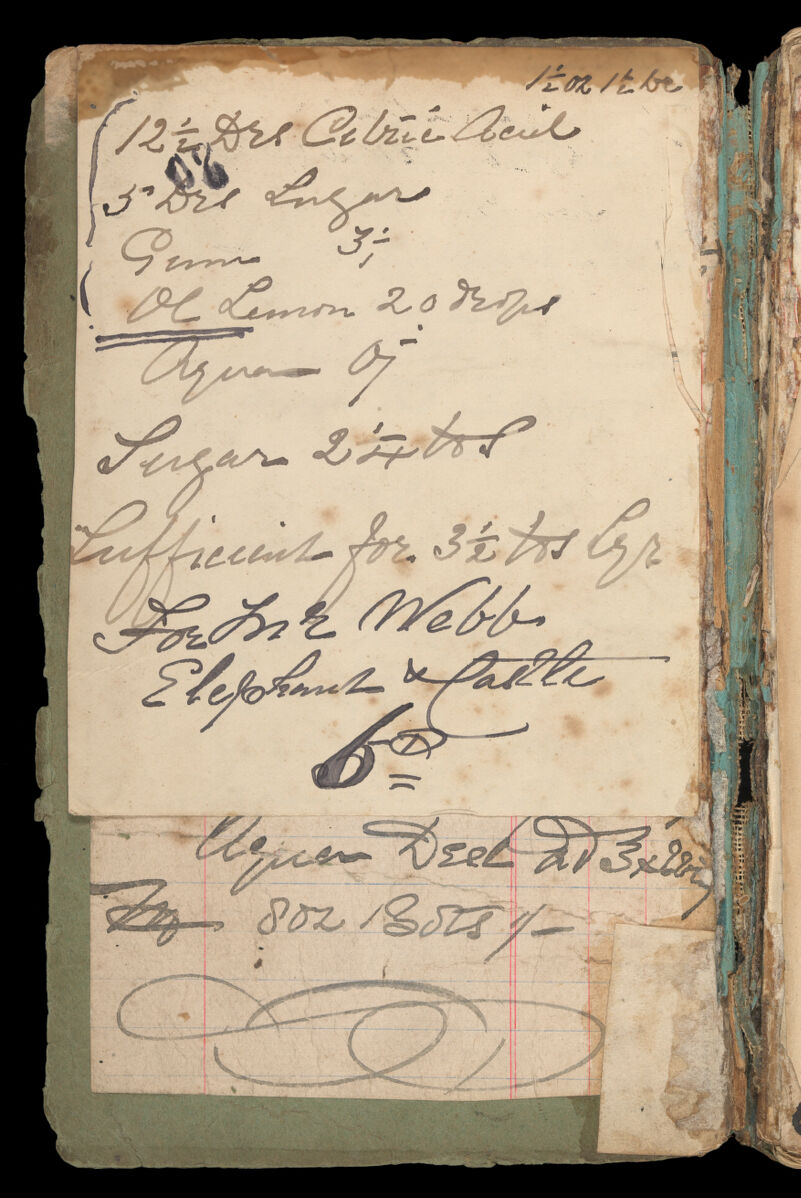 1½ oz 1½ be
12½ Drs Citric Acid
5 Drs Sugar
Gum
Ol Lemon 20 drops
Aqua Oj
Sugar 2¼ lbs
Sufficient for 3½ lbs
For Mr Webb
Elephant & Castle
6D
Aqua Dest ad
8 oz Bots 1/-